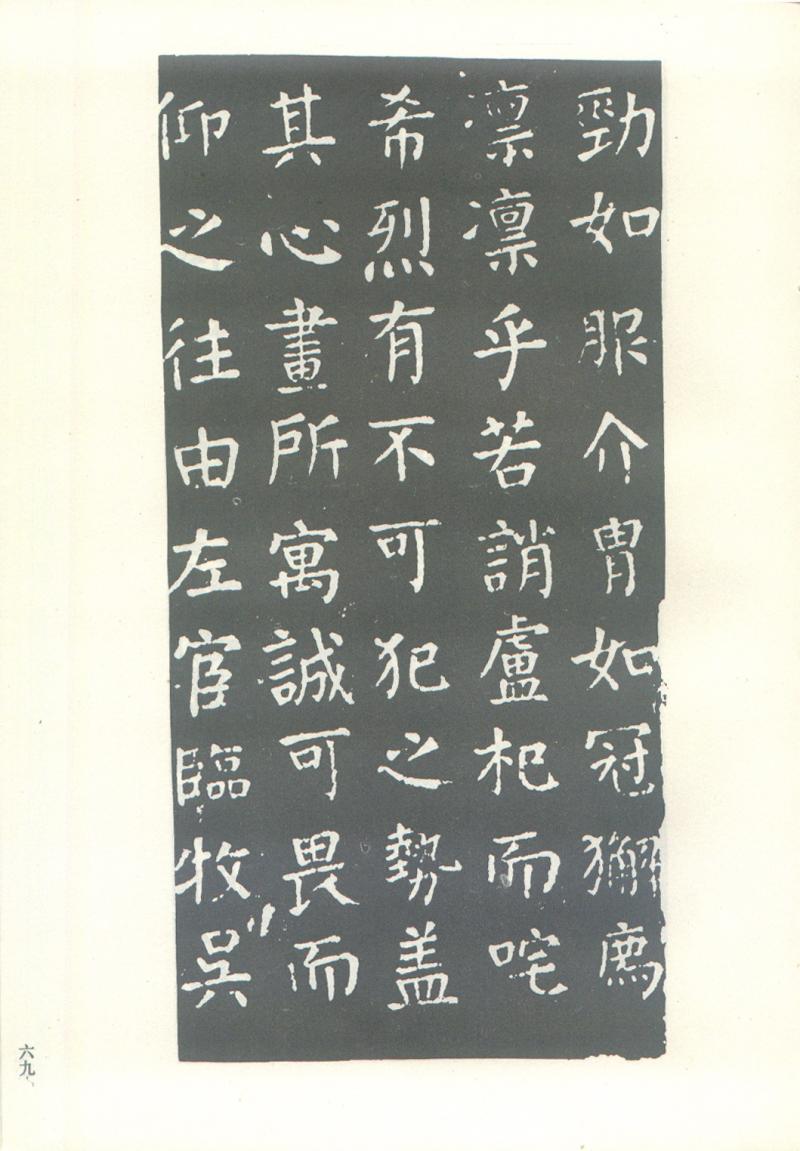 勁如服介冑如冠獬廌
凛凛乎若誚盧杞而咤
希烈有不可犯之勢盖
其心畫所寓誠可畏而
仰之往由左宦臨牧吳
六九